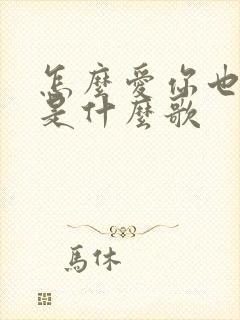 怎麼愛你也
是什麼歌
馬休